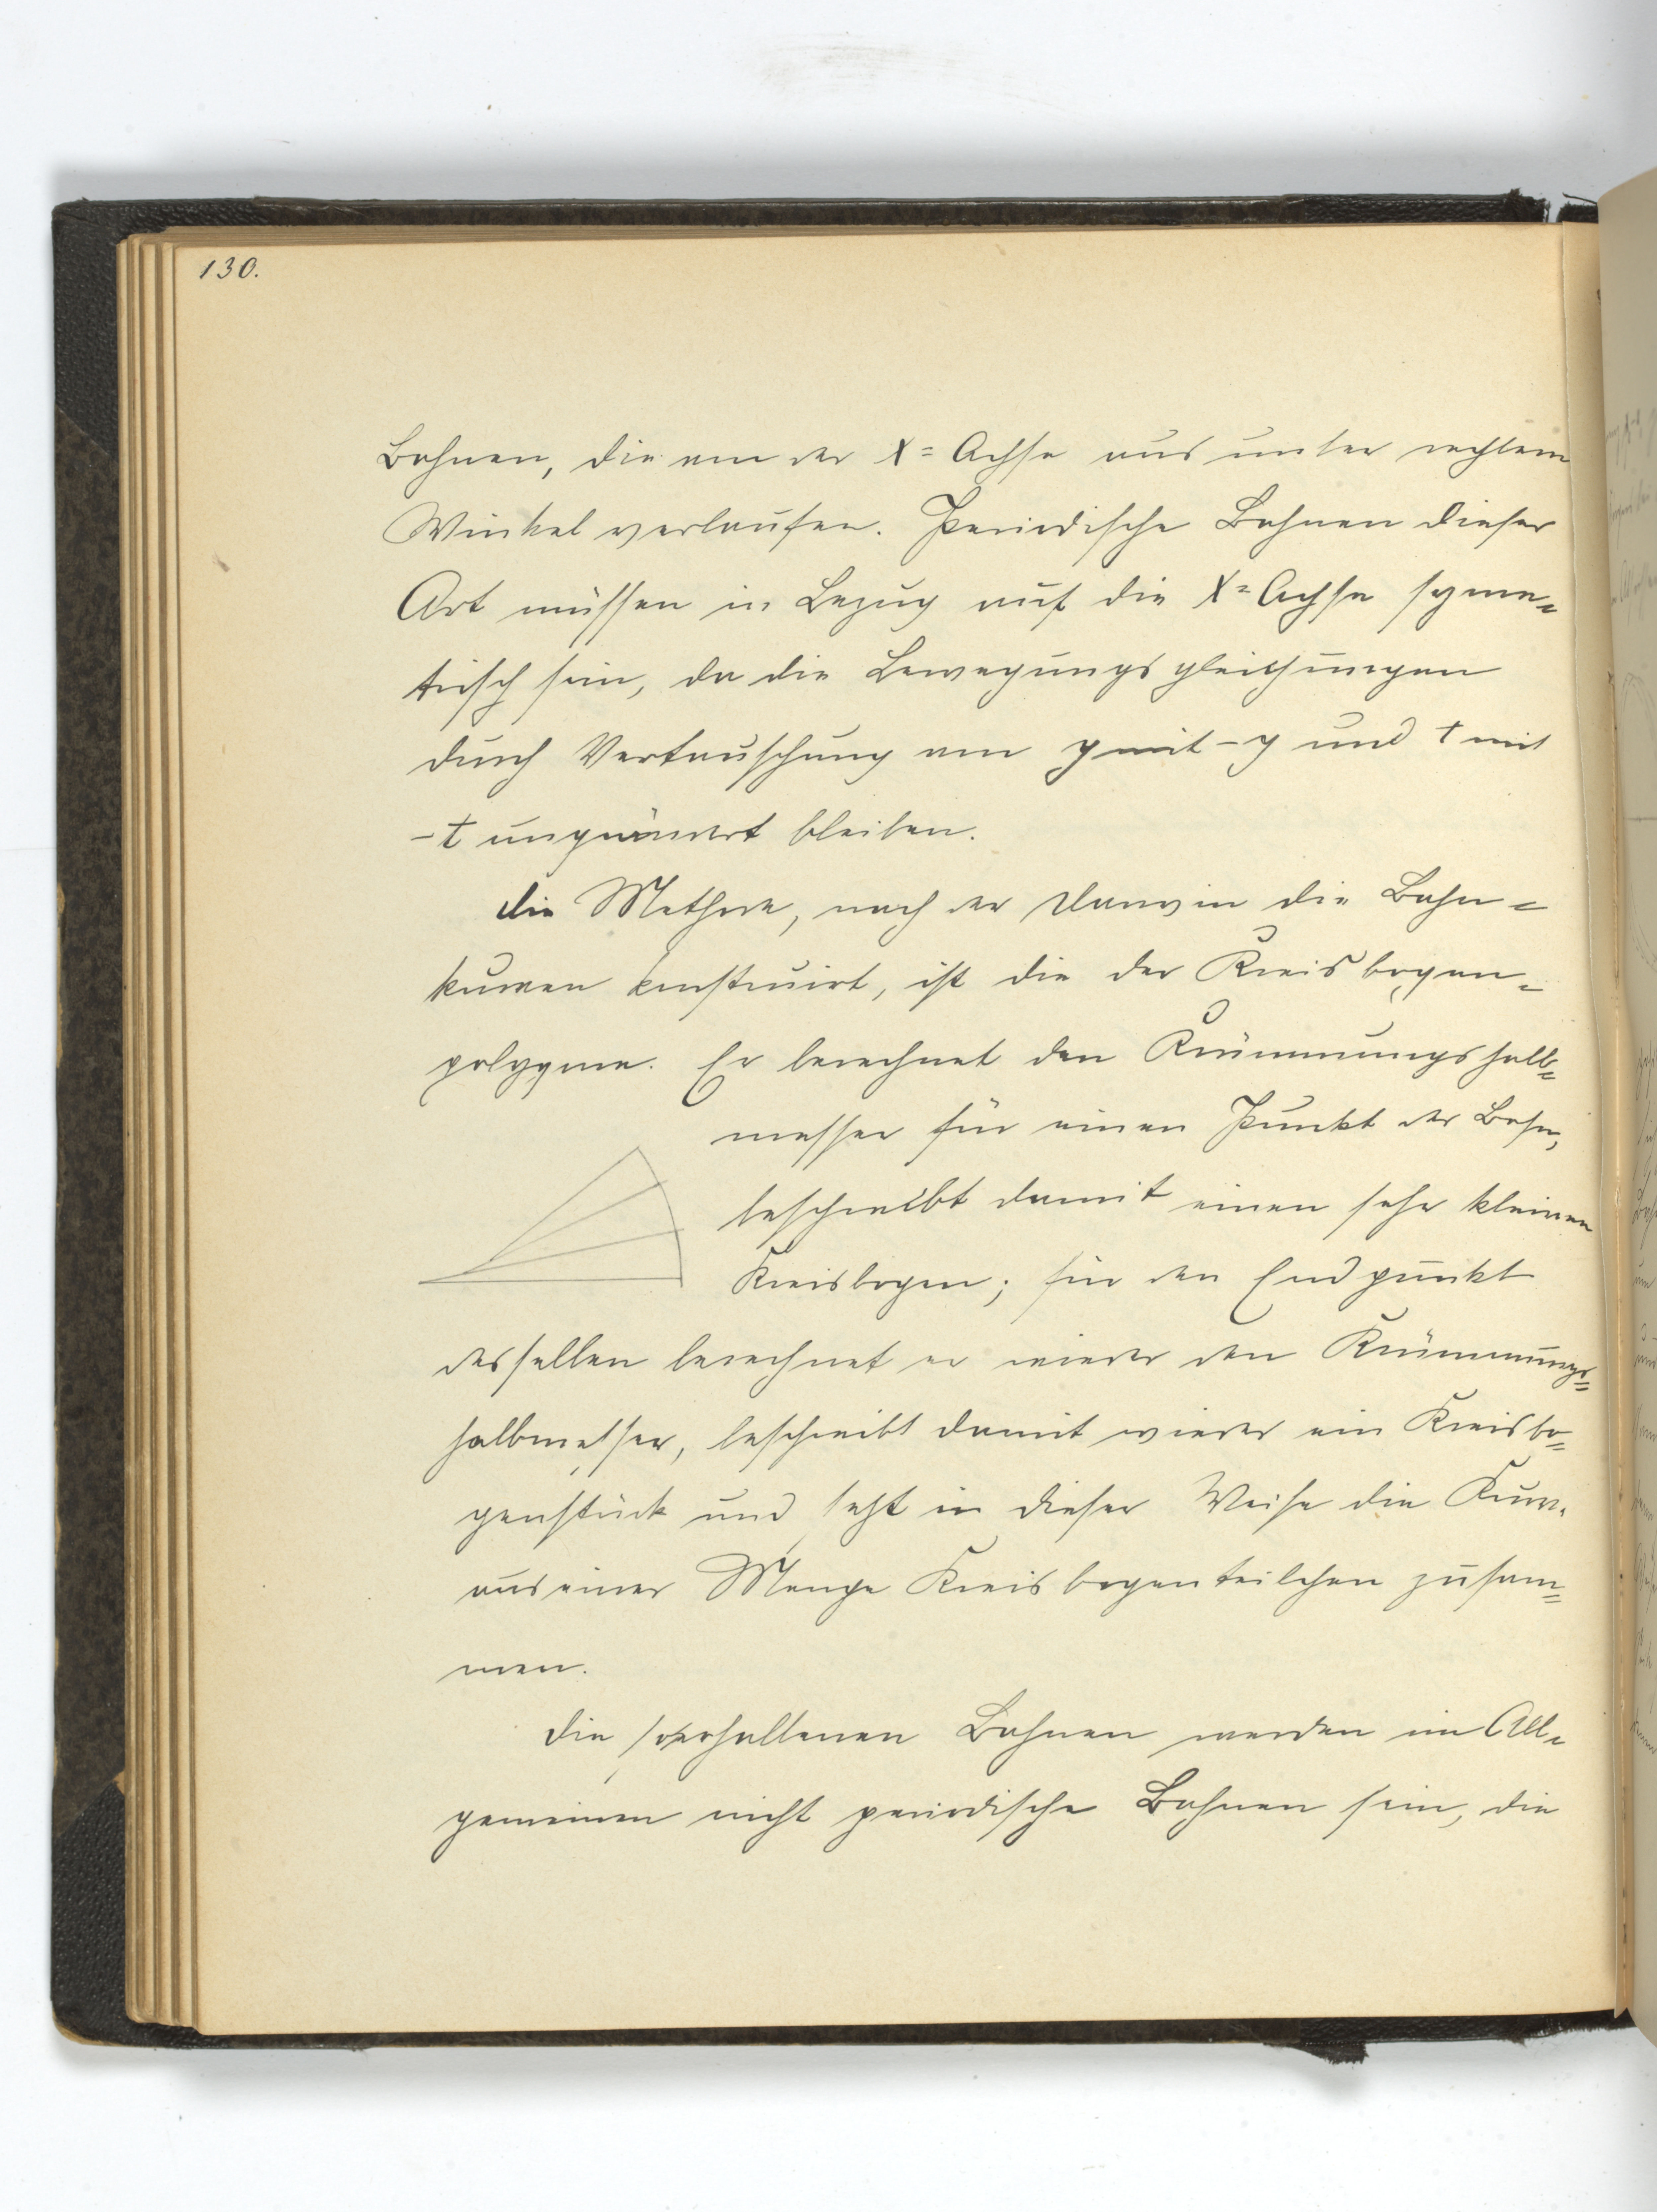 130.
Bahnen, die von der X=Achse aus unter rechtem
Winkel verlaufen. Periodische Bahnen dieser
Art müssen in Bezug auf die X=Achse syme=
trisch sein, da die Bewegungsgleichungen
durch Vertauschung von y mit -y und t mit
-t ungeändert bleiben.
Die Methode, nach der Darwin die Bahn=
kurven konstruirt, ist die der Kreisbogen=
polygone. Er berechnet den Krümmungshalb=
messer für einen Punkt der Bahn,
beschreibt damit einen sehr kleinen
Kreisbogen; für den Endpunkt
desselben berechnet er wieder den Krümmungs=
halbmesser, beschreibt damit wieder ein Kreisbo=
genstück und setzt in dieser Weise die Kurve
aus einer Menge Kreisbogenteilchen zusam=
men.
Die so erhaltenen Bahnen werden im All=
gemeinen nicht periodische Bahnen sein, die